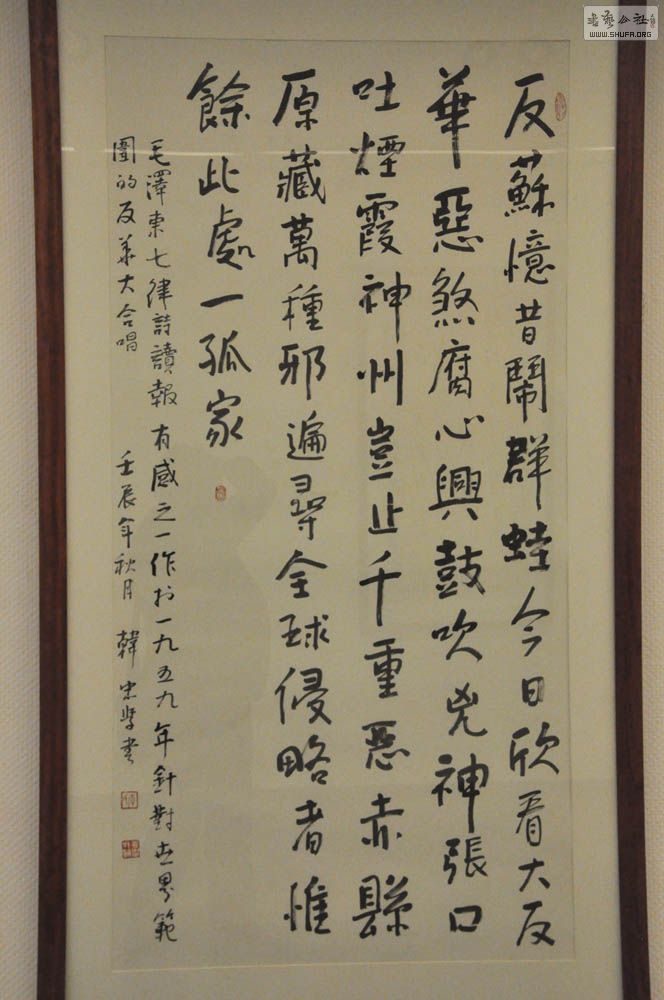 反蘇憶昔鬧群蛙今日欣看大反
華惡煞腐心興鼓吹兇神張口
吐煙霞神州豈止千重惡赤縣
原藏萬種邪遍尋全球侵略者惟
餘此處一孤家
毛澤東七律詩讀報有感之一作於一九五九年針對世界範
圍的反華大合唱 壬辰年秋月 韓 書
書藝公社
WWW.SHUFA.ORG